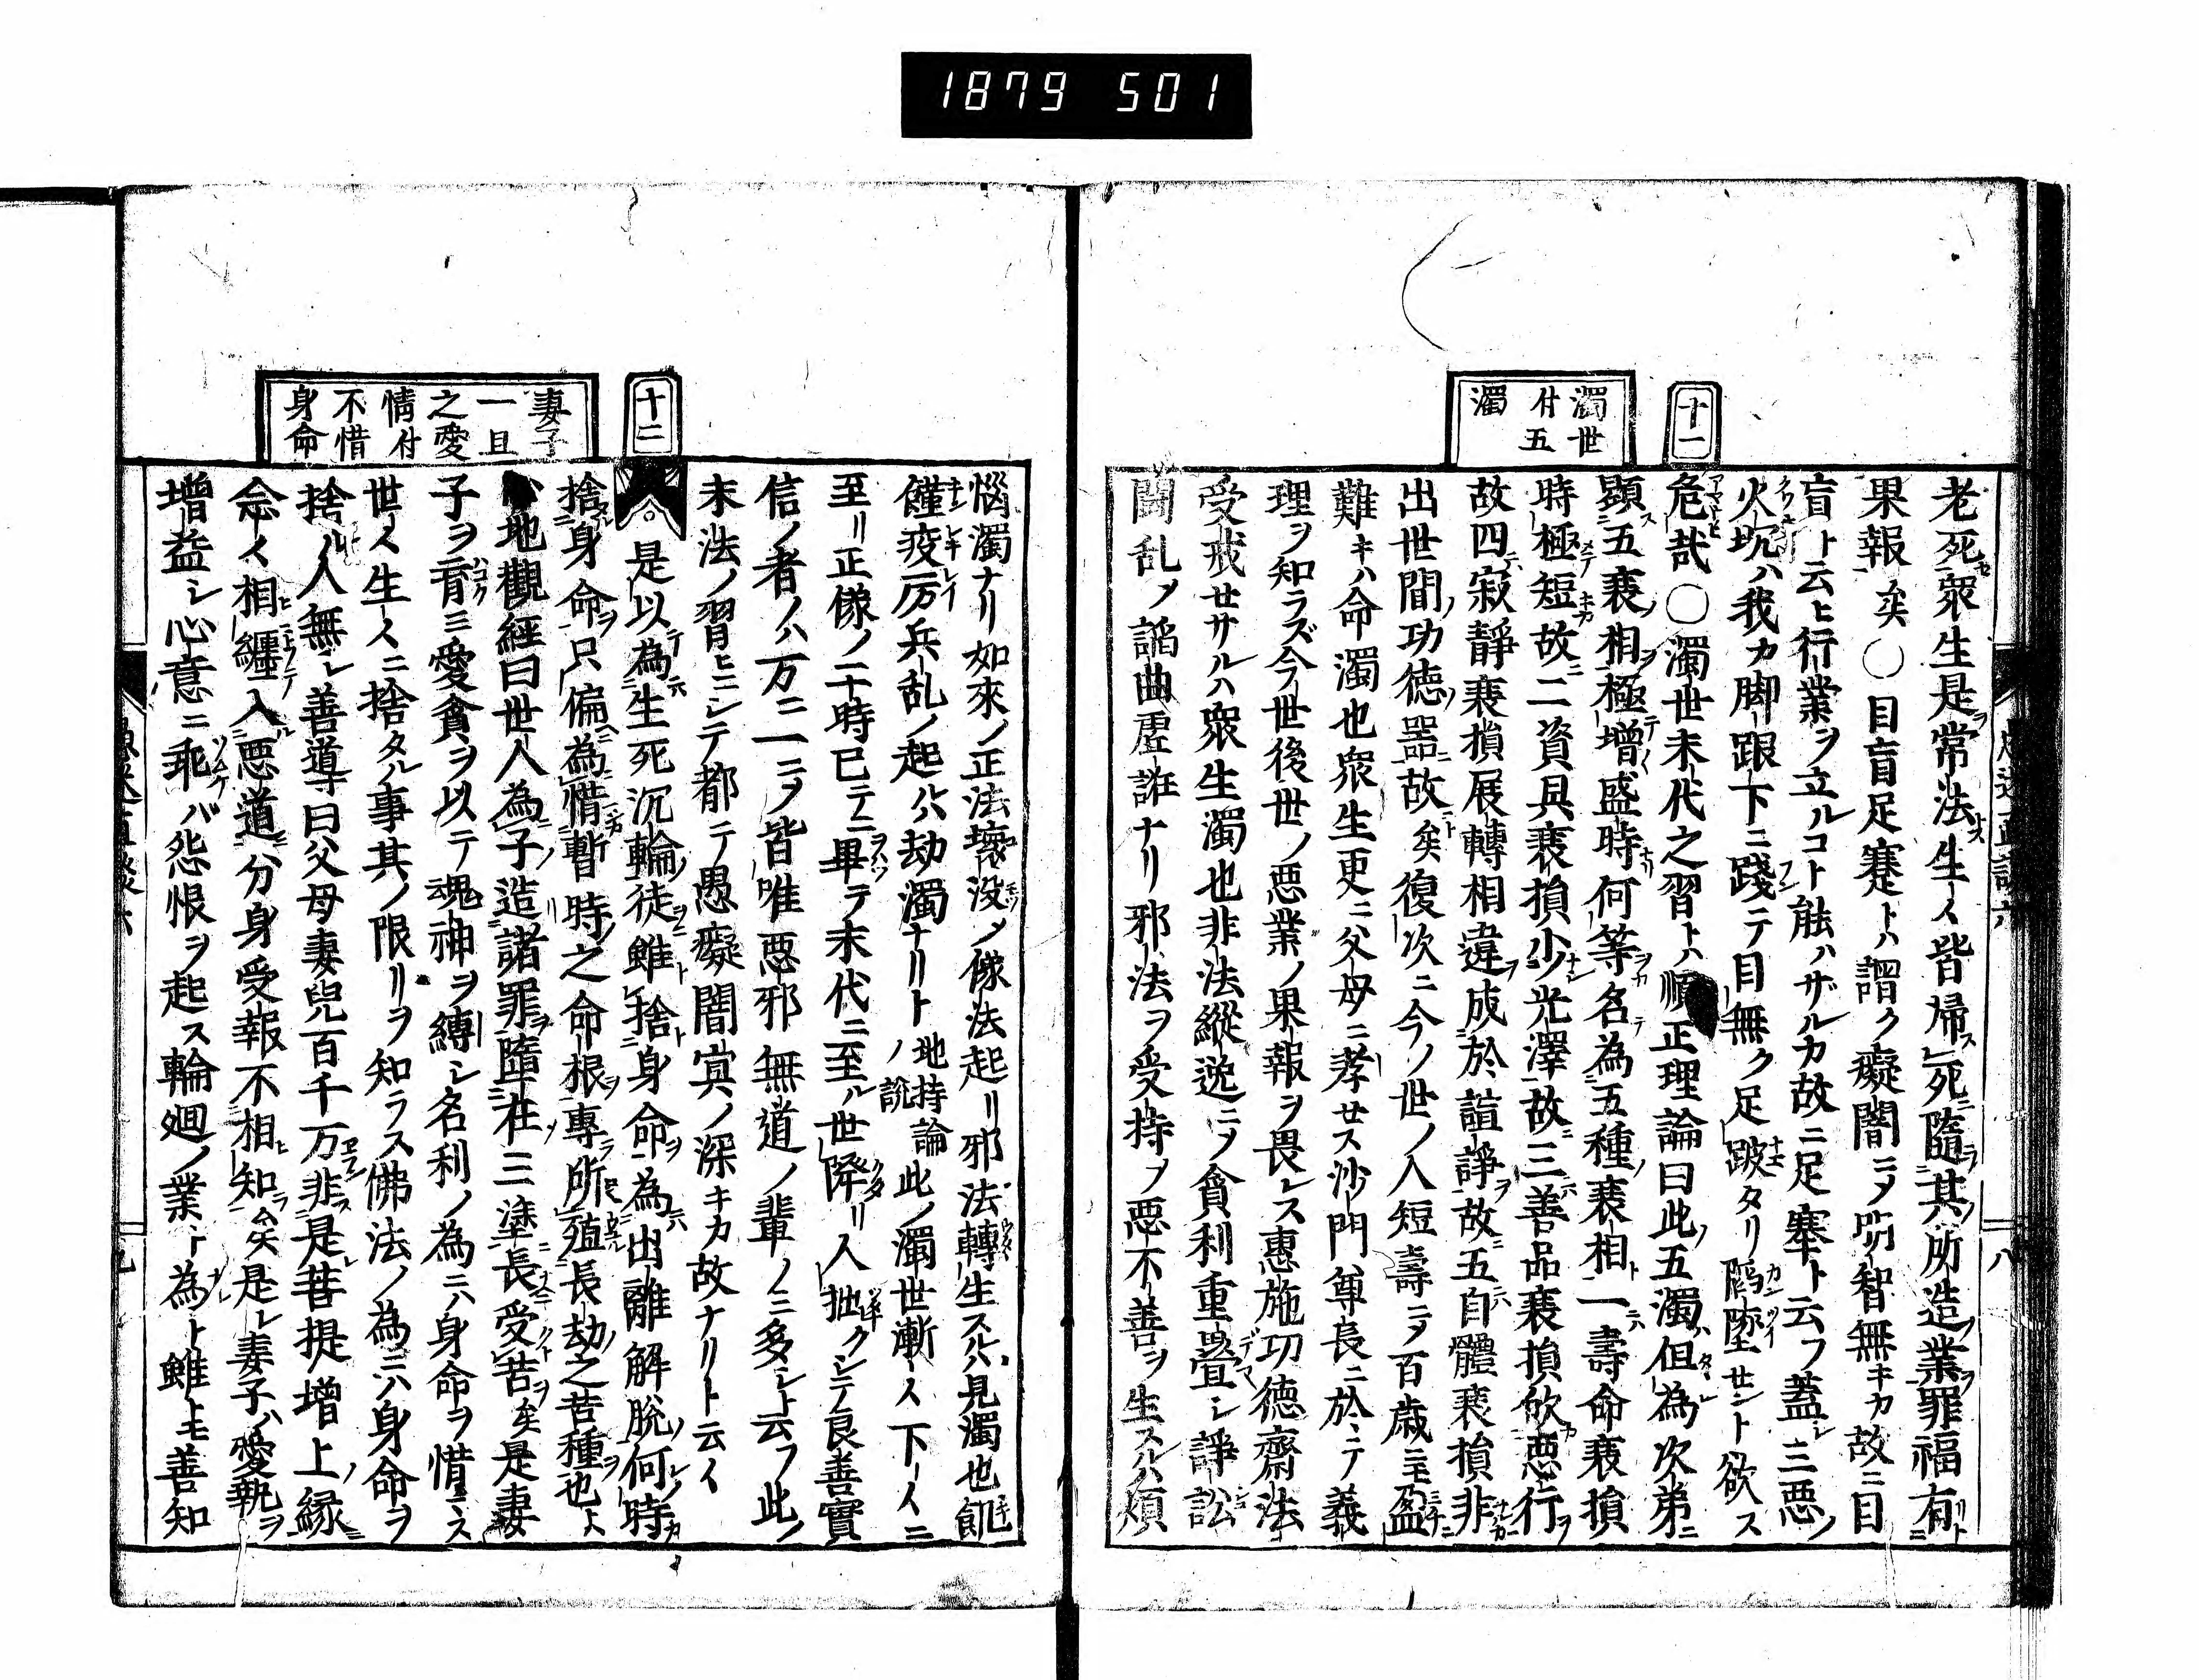 1879 501
十一
濁世
付五
濁
老死衆生是常法生〱皆帰死隨其所造業罪福有
果報矣〇目盲足蹇トハ謂ク癡闇ニメ明智無キカ故ニ目
盲ト云ヒ行業ヲ立ルコト能ハザルカ故ニ足蹇ト云フ蓋シ三悪ノ
火坑ハ我カ脚跟下ニ踐テ目無ク足跛タリ陷墜セント欲ス
危哉〇濁世末代之習トハ順正理論曰此五濁但為次弟
顕五衰相極增盛時何等名為五種衰相一壽命衰損
時極短故二資具衰損少光澤故三善品衰損欣悪行
故四寂靜衰損展轉相違成於諠諍故五自體衰損非
出世間功徳噐故矣復次ニ今ノ世ノ人短壽ニメ百歳ニモ盈
難キハ命濁也衆生更ニ父母ニ孝セス沙門尊長ニ於テ義
理ヲ知ラズ今世後世ノ悪業ノ果報ヲ畏レス惠施功徳齋法
受戒セサルハ衆生濁也非法縱逸ニメ貪利重畳シ諍訟
鬪乱メ謟曲虚誑ナリ邪法ヲ受持メ悪不善ヲ生スルハ煩
十二
妻子
一旦
之愛
情付
不惜
身命
惱濁ナリ如來ノ正法壊没メ像法起リ邪法轉生スルハ見濁也飢
饉疫厉兵乱ノ起ルハ劫濁ナリト地持論ノ説此ノ濁世漸〱下〱ニ
至リ正像ノ二十時已テニ畢テ末代ニ至ル世降リ人拙クシテ良善實
信ノ者ノハ万ニ一ニヲ皆唯悪邪無道ノ輩ノミ多シト云フ此ノ
末法ノ習ヒニシテ都テ愚癡闇冥ノ深キカ故ナリト云〱
是以為生死沉輪徒雖捨身命為出離解脱何時
捨身命只偏為惜暫時之命根專所殖長劫之苦種也
心地觀經曰世人為子造諸罪墮在三塗長受苦矣是妻
子ヲ育ミ愛貪ヲ以テ魂神ヲ縛シ名利ノ為ニハ身命ヲ惜マス
世〱生〱ニ捨タル事其ノ限リヲ知ラス佛法ノ為ニハ身命ヲ
捨ル人無シ善導曰父母妻兒百千万非是菩提增上縁
念〱相纏入悪道分身受報不相知矣是レ妻子ハ愛執ヲ
增益シ心意ニ乖バ怨恨ヲ起ス輪廻ノ業ト為ト雖トモ善知